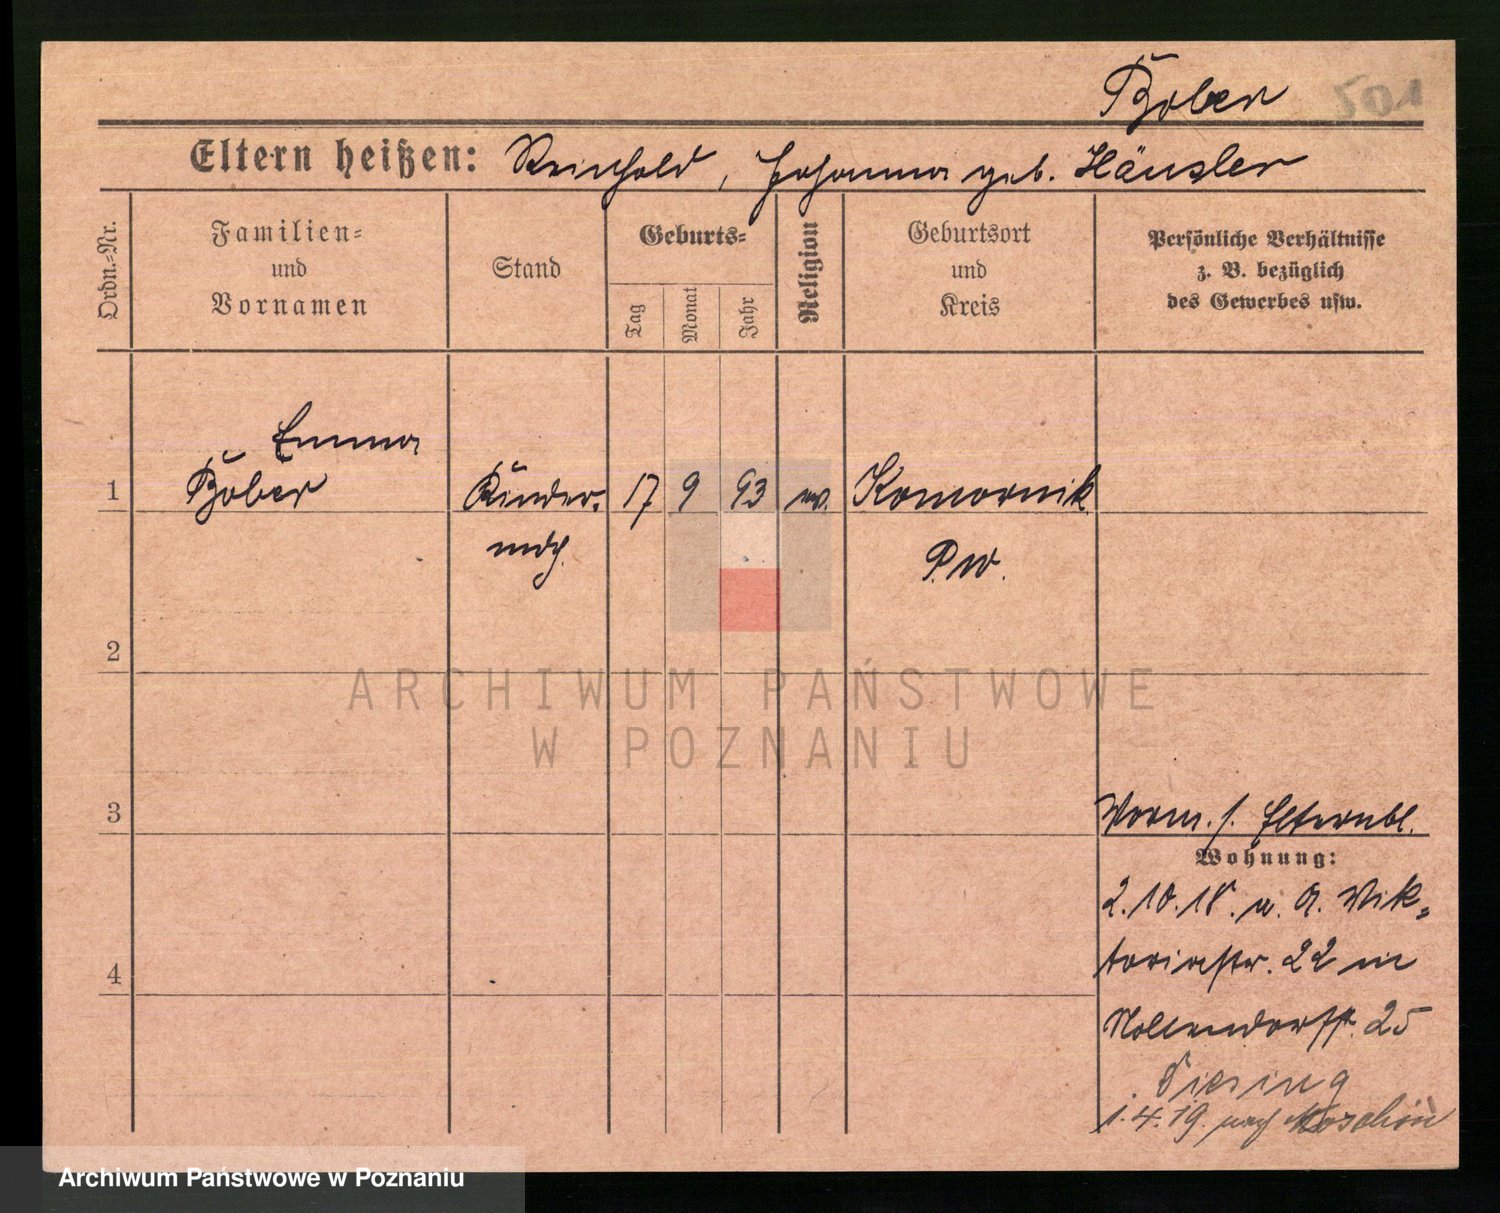 Bober 501
Eltern heißen: Reinhold, Johanna geb. Hänsler
Ordn.-Nr.
Familien- und Vornamen
Stand
Geburts-
Tag
Monat
Jahr
Religion
Geburtsort und Kreis
Persönliche Verhältnisse
z. B. bezüglich
des Gewerbes usw.
Emma
1 Bober Kinder- 17 9 93 ev. Komornik
mdch. P. W.
2
3
Vorm. s. Elternbl.
Wohnung:
2.10.18. v. A. Vik-
toriastr. 22 in
4
Nollendorfstr. 25
1.4.19. nach Moschin
ARCHIWUM PAŃSTWOWE
W POZNANIU
Archiwum Państwowe w Poznaniu